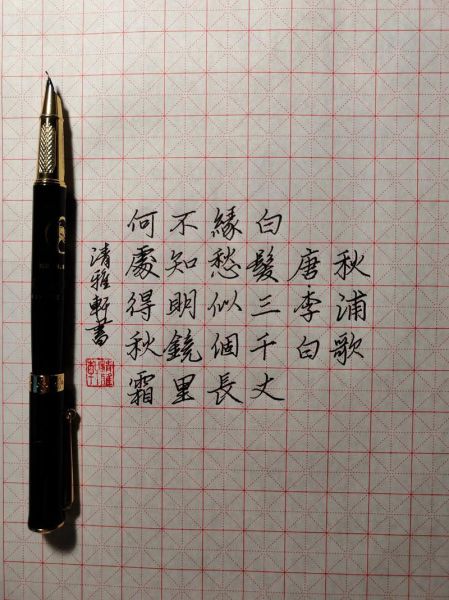 秋浦歌
唐李白
白髮三千丈
緣愁似個長
不知明鏡里
何處得秋霜
清雅軒書